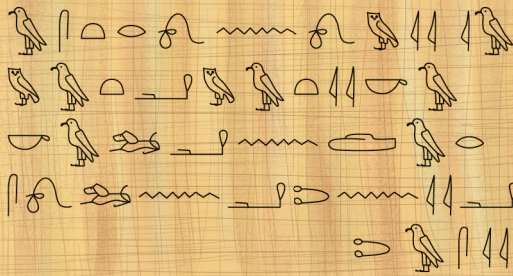 𓄿𓋴𓏏𓂋𓍯𓈖𓍯𓅓𓇌𓇋𓄿
𓅓𓄿𓏏𓂝𓅓𓄿𓏏𓇌𓎡𓄿
𓎡𓄿𓃭𓂝𓈖𓂧𓄿𓂋
𓋴𓍯𓃭𓈖𓂝𓍿𓈖𓇌𓂝
𓍿𓄿𓋴𓇌